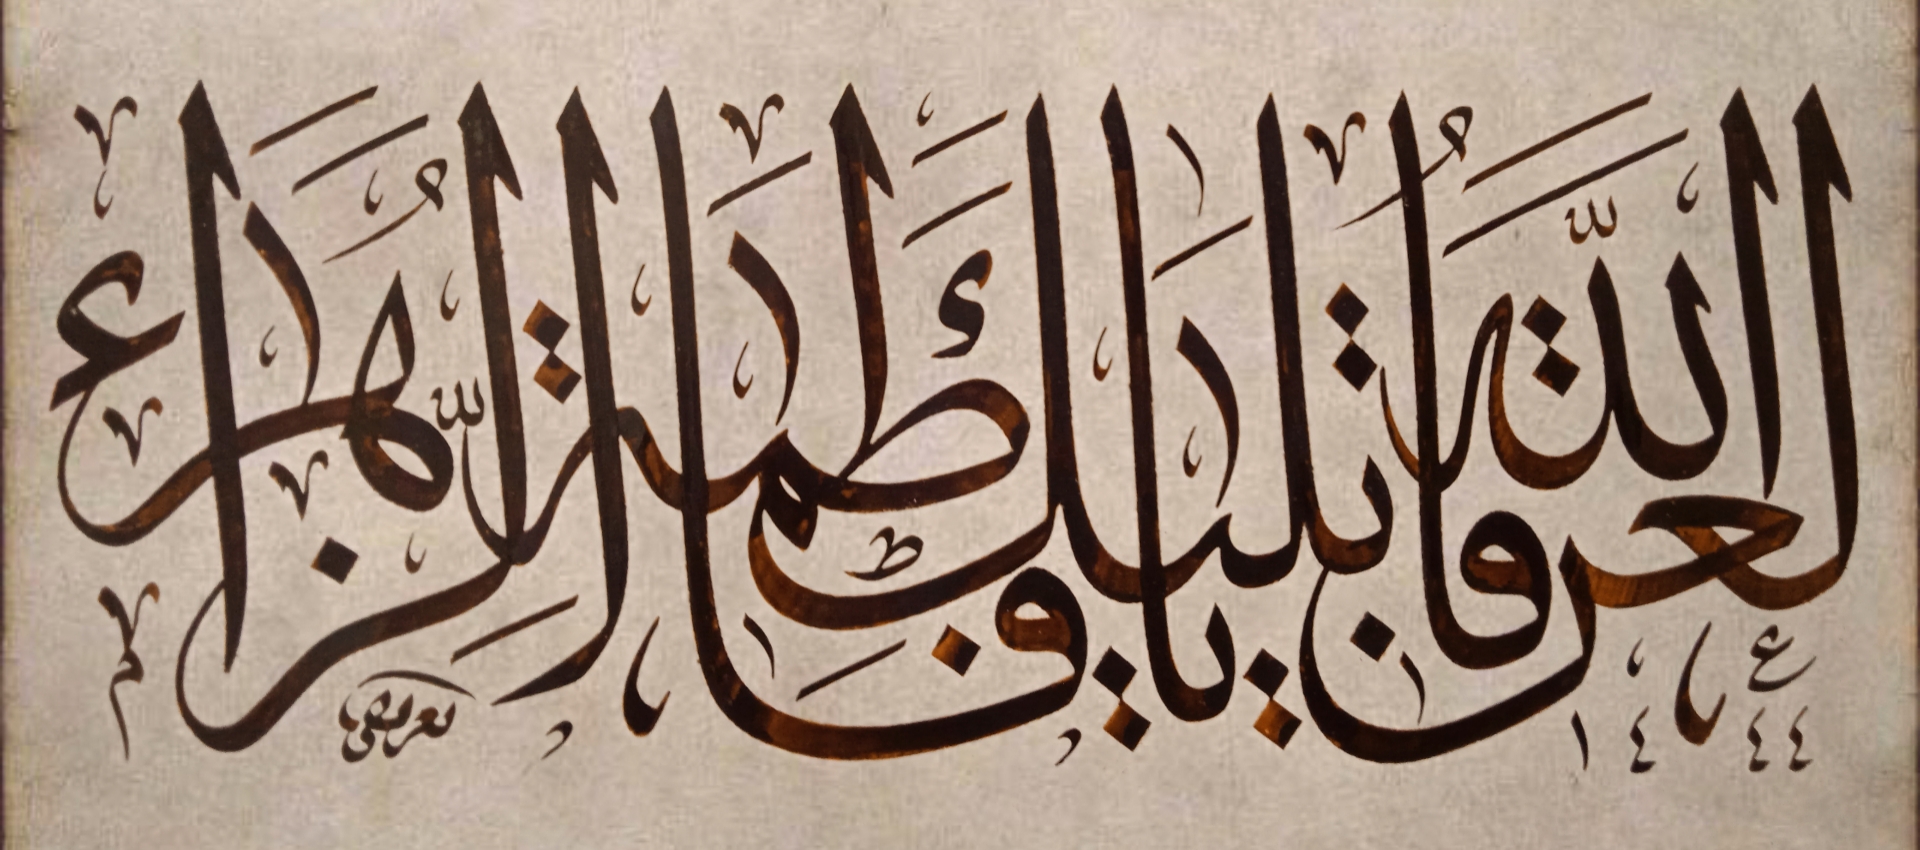 لعن الله قاتليك يا فاطمة الزهراء
١٤٤٤